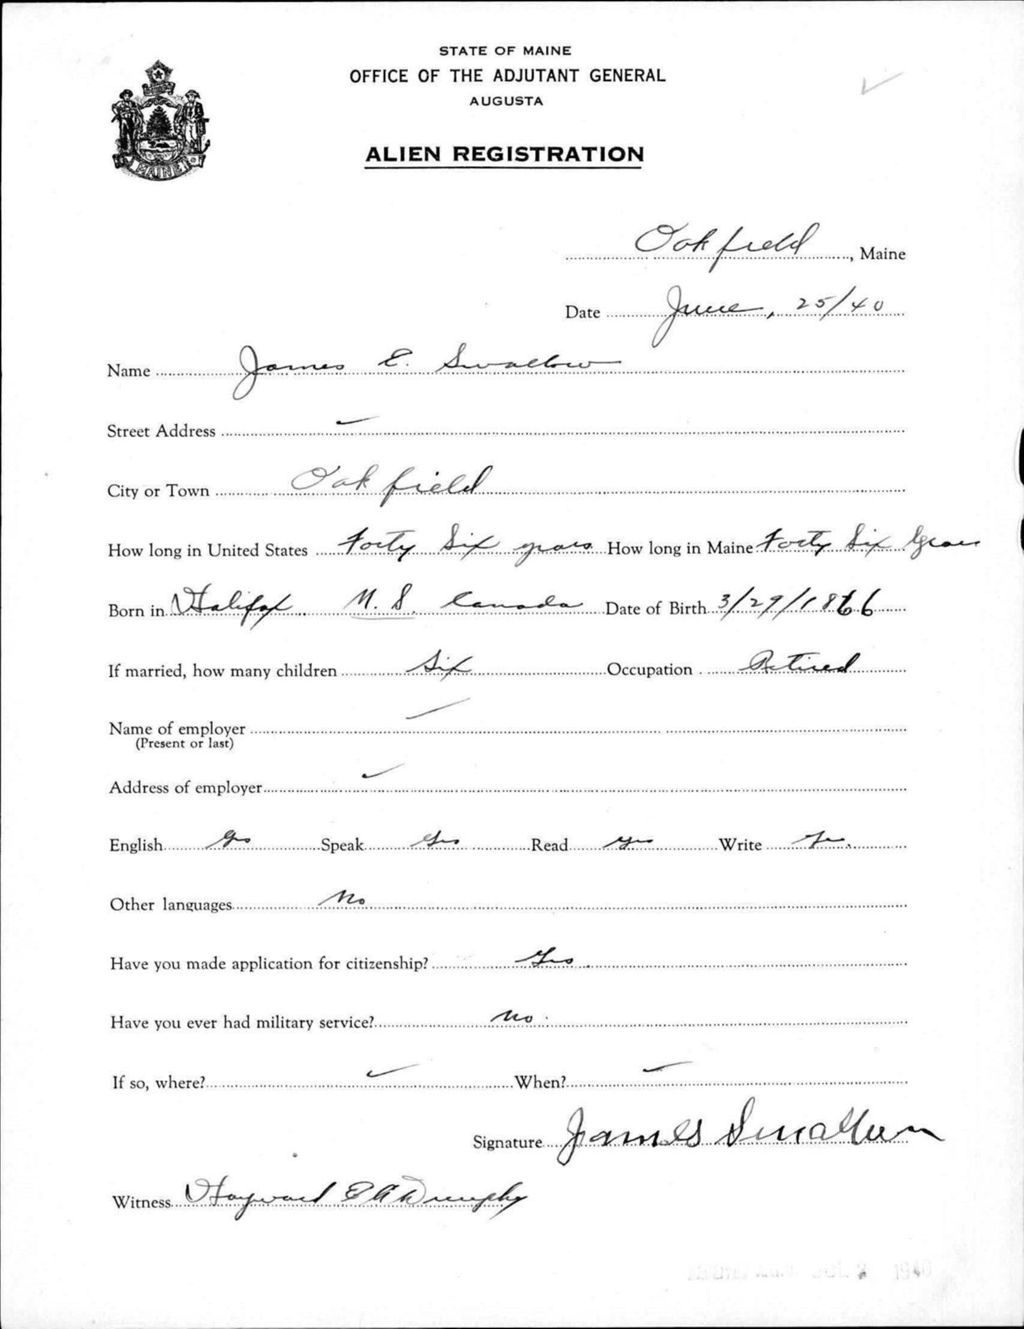 STATE OF MAINE
OFFICE OF THE ADJUTANT GENERAL
AUGUSTA
ALIEN REGISTRATION
MAINE
Oakfield, Maine
Date June, 25/40
Name James E. Swallow
Street Address
City or Town Oakfield
How long in United States Forty Six years How long in Maine Forty Six Years
Born in Halifax N. S. Canada Date of Birth 3/29/1866
If married, how many children Six Occupation Retired
Name of employer
(Present or last)
Address of employer
English Yes Speak Yes Read Yes Write Yes
Other languages No
Have you made application for citizenship? Yes
Have you ever had military service? No
If so, where? When?
Signature James Swallow
Witness Hayward Dunphy
JUL 2 1940